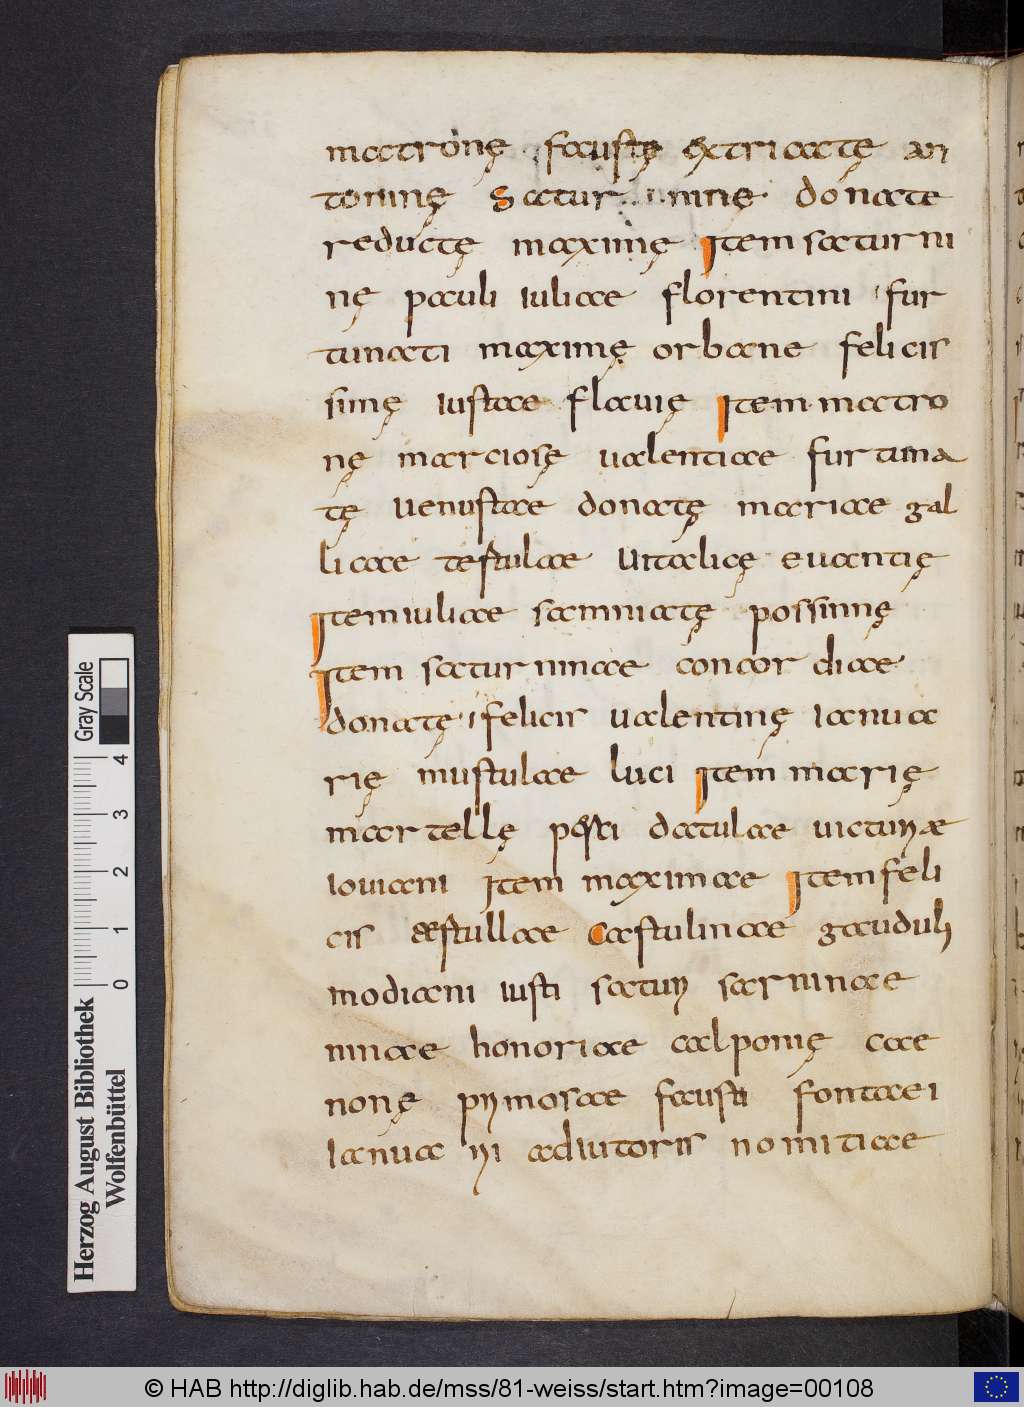 matronę faustę extricatę an
toninę Satur ninę donate
reductę maximę Item saturni
nę pauli iuliae florentini fur
tunati maximę orbane felicis
simę iustae flauię Item matro
nę marciosę ualentiae furtuna
tę uenustae donatę mariae gal
licae testulae uitalicę euantię
Item iuliae samniatę possinnę
Item saturninae concordiae
donatę felicis ualentinę ianua
rię mustulae luci Item marię
martellę posti datulae uicturiae
iouiani Item maximae Item feli
cis aestullae Castulinae gauduli
modiani iusti saturi sarninae
ninae honoriae calponię cae
nonę primosae fausti fontaei
ianua rii adiutoris nomitiae
Gray Scale
4
3
2
1
0
Herzog August Bibliothek
Wolfenbüttel
© HAB http://diglib.hab.de/mss/81-weiss/start.htm?image=00108